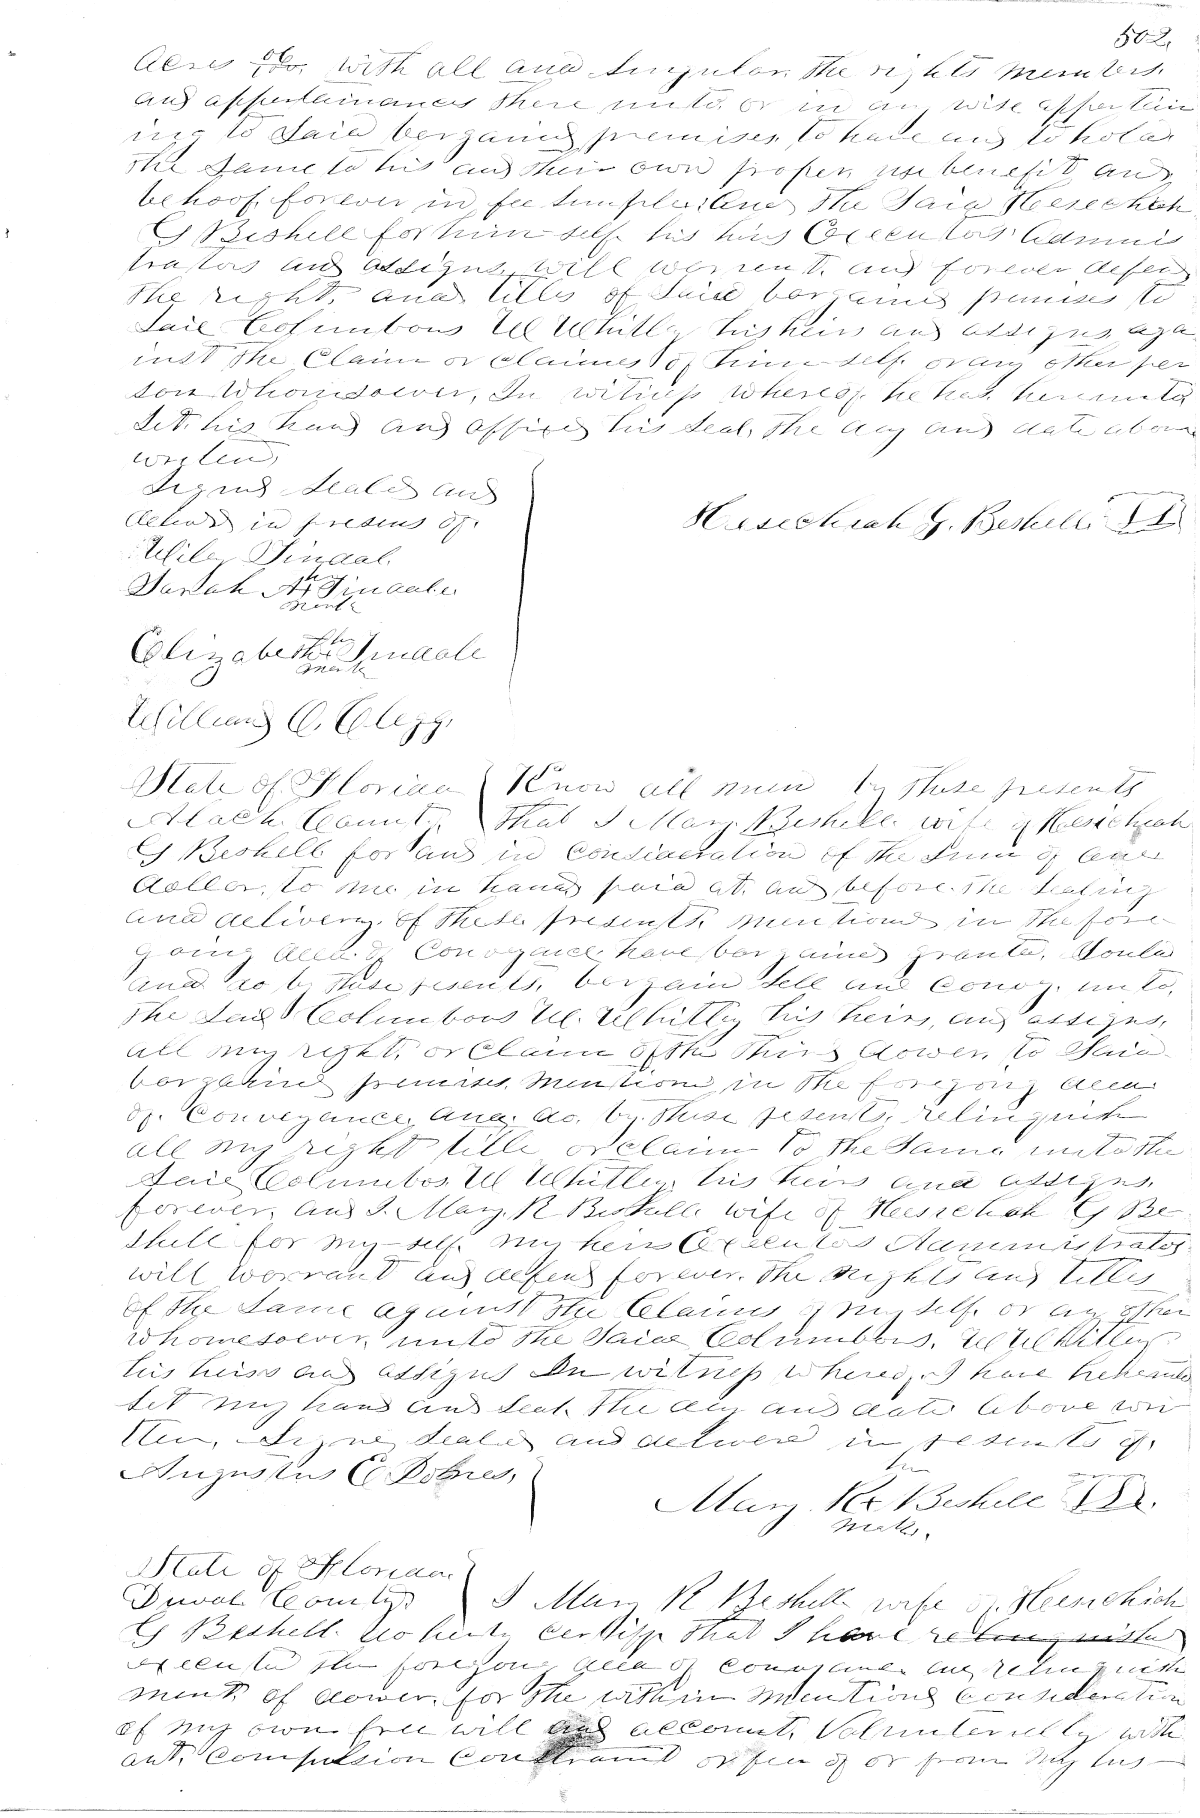 502,
Acres &c. with all and singular the rights members
and appertainances there unto or in any wise appertain
ing to said bargained premises, to have and to hold
the same to his and their own proper use benefit and
behoof forever in fee simple; And the said Hesechiah
G Beshell for him self his heirs Executors Adminis
trators and assigns will warrent and forever defend
the right, and titles of said bargained premises to
said Columbous W Whitley his heirs and assigns, aga
inst the Claim or claimes of him self or any other per
son Whomsoever, In witness whereof he has hereunto
Set his hand and affixed his seal, the day and date above
writen,
Signed Sealed and
in presens of.
Wiley Tindal.
Sarah A her Tindale
mark
Elizabeth her Tindale
mark
William C. Clegg.
Hesechiah G. Beshell.
State of Florida Know all men by these presents
County That I Mary Beshell wife of Hesichiah
G Beshell for and in consideration of the Sum of
dollar, to me in hand paid at and before the sealing
and delivery of these presents mentioned in the fore
going deed of Convoyance have bargained granted, Sould
and do by these presents, bergain Sell and Convoy, unto,
the Said Columbous W. Whitley his heirs, and assigns,
all my right, or Claim of the third dower, to Said
bargained premises mentioned in the foregoing deed
of Conveyance, and do by these presents, relinquish
all my right title or claim to the same unto the
Said Columbos W Whitley his heirs and assigns,
forever, and I Mary R Beshell wife of Hesichah G Be
shell for my self my heirs Executos Administrators
will worrant and defend forever the rights and titles
of the same against the Claims of my self or any other
whomesoever, unto the Said Columbous, W Whitley
his heirs and assigns In witness whereof I have
Set my hand and Seal the day and date above wri
tten, Signed Sealed and delivered in presents of,
Augustus C
her
Mary R x Beshell
mark.
State of Florida
Duval County I Mary R Beshell wife of Hesichiah
G Beshell do herby certify that I have relinquished
executed the foregoing deed of convoyance and relinquish
ment of dower for the within mentioned consideration
of my own free will and account, Voluntarielly with
out, compulsion constraint or fear of or from my hus